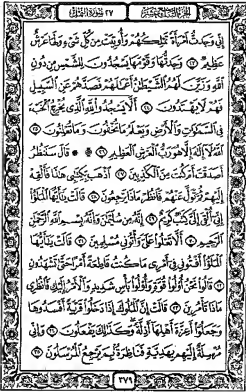 الجزء التاسع عشر ٢٧ سورة النمل
إِنِّي وَجَدتُّ ٱمْرَأَةً تَمْلِكُهُمْ وَأُوتِيَتْ مِن كُلِّ شَيْءٍ وَلَهَا عَرْشٌ
عَظِيمٌ ٢٣ وَجَدتُّهَا وَقَوْمَهَا يَسْجُدُونَ لِلشَّمْسِ مِن دُونِ
ٱللَّهِ وَزَيَّنَ لَهُمُ ٱلشَّيْطَٰنُ أَعْمَٰلَهُمْ فَصَدَّهُمْ عَنِ ٱلسَّبِيلِ
فَهُمْ لَا يَهْتَدُونَ ٢٤ أَلَّا يَسْجُدُوا۟ لِلَّهِ ٱلَّذِي يُخْرِجُ ٱلْخَبْءَ
فِي ٱلسَّمَٰوَٰتِ وَٱلْأَرْضِ وَيَعْلَمُ مَا تُخْفُونَ وَمَا تُعْلِنُونَ ٢٥
ٱللَّهُ لَا إِلَٰهَ إِلَّا هُوَ رَبُّ ٱلْعَرْشِ ٱلْعَظِيمِ ۩ ٢٦ ۞ قَالَ سَنَنظُرُ
أَصَدَقْتَ أَمْ كُنتَ مِنَ ٱلْكَٰذِبِينَ ٢٧ ٱذْهَب بِّكِتَٰبِي هَٰذَا فَأَلْقِهْ
إِلَيْهِمْ ثُمَّ تَوَلَّ عَنْهُمْ فَٱنظُرْ مَاذَا يَرْجِعُونَ ٢٨ قَالَتْ يَٰٓأَيُّهَا ٱلْمَلَؤُا۟
إِنِّي أُلْقِيَ إِلَيَّ كِتَٰبٌ كَرِيمٌ ٢٩ إِنَّهُ مِن سُلَيْمَٰنَ وَإِنَّهُ بِسْمِ ٱللَّهِ ٱلرَّحْمَٰنِ
ٱلرَّحِيمِ ٣٠ أَلَّا تَعْلُوا۟ عَلَيَّ وَأْتُونِي مُسْلِمِينَ ٣١ قَالَتْ يَٰٓأَيُّهَا
ٱلْمَلَؤُا۟ أَفْتُونِي فِي أَمْرِي مَا كُنتُ قَاطِعَةً أَمْرًا حَتَّىٰ تَشْهَدُونِ
٣٢ قَالُوا۟ نَحْنُ أُو۟لُوا۟ قُوَّةٍ وَأُو۟لُوا۟ بَأْسٍ شَدِيدٍ وَٱلْأَمْرُ إِلَيْكِ فَٱنظُرِي
مَاذَا تَأْمُرِينَ ٣٣ قَالَتْ إِنَّ ٱلْمُلُوكَ إِذَا دَخَلُوا۟ قَرْيَةً أَفْسَدُوهَا
وَجَعَلُوا۟ أَعِزَّةَ أَهْلِهَا أَذِلَّةً وَكَذَٰلِكَ يَفْعَلُونَ ٣٤ وَإِنِّي
مُرْسِلَةٌ إِلَيْهِم بِهَدِيَّةٍ فَنَاظِرَةٌ بِمَ يَرْجِعُ ٱلْمُرْسَلُونَ ٣٥
٣٧٩